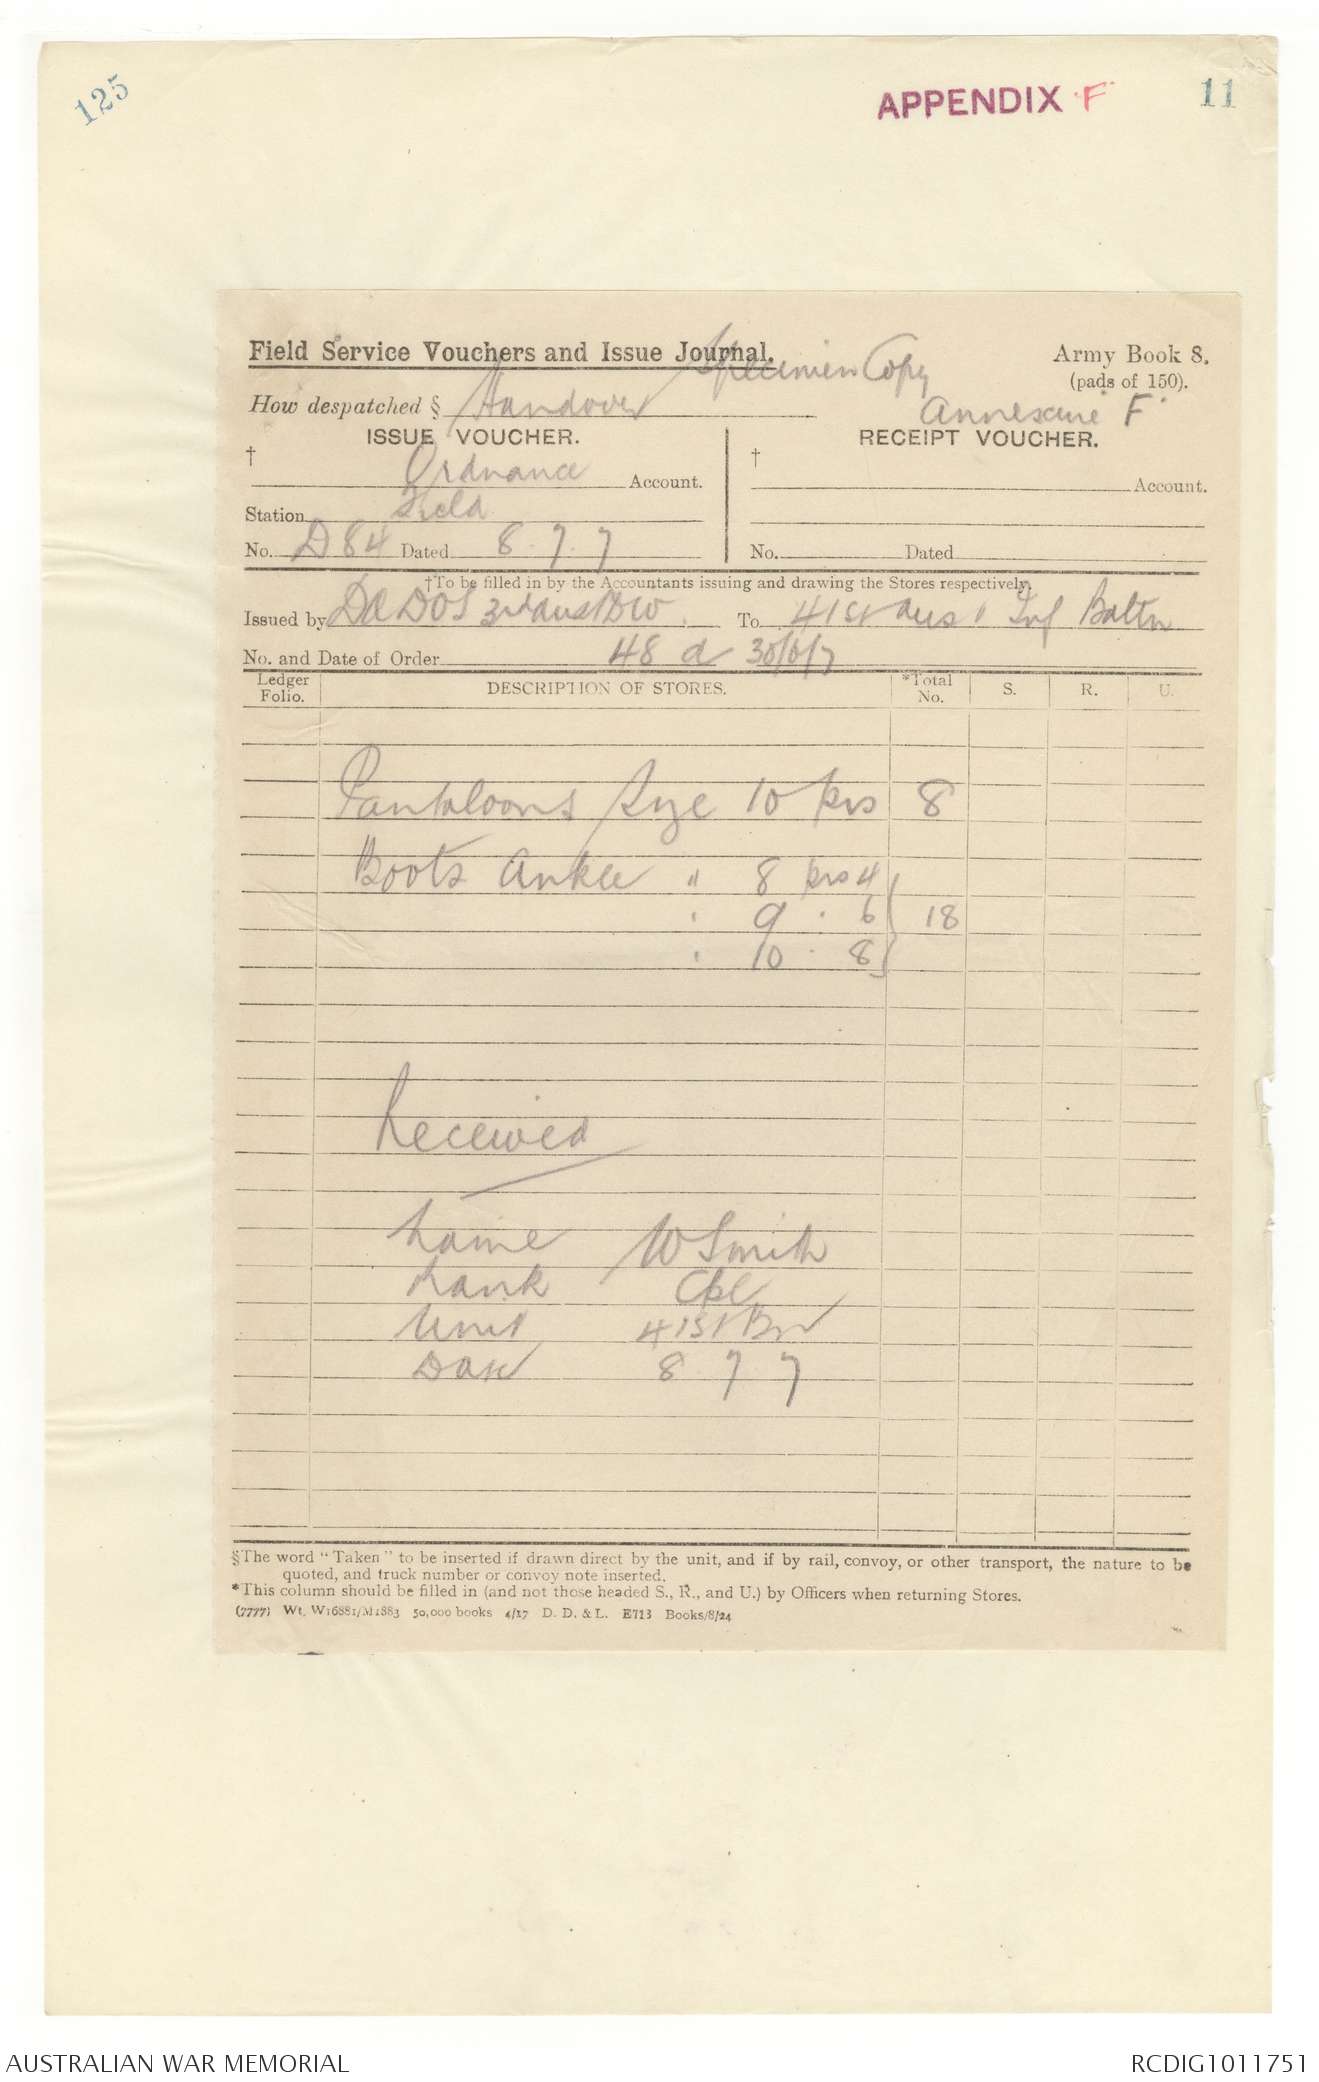 125
APPENDIX "F"
11
Field Service Vouchers and Issue Journal.
Specimen Copy
Army Book 8.
(pads of 150).
How despatched § Handover
Annexure F"
ISSUE VOUCHER.
RECEIPT VOUCHER.
† Ordnance Account.
† Account.
Station Field
No. D 84 Dated 8.7.7
No. Dated
†To be filled in by the Accountants issuing and drawing the Stores respectively.
Issued by DADOS 3rd Aust Div. To 41st Aus" Inf Battn
No. and Date of Order 48 a 30/6/7
Ledger Folio.
DESCRIPTION OF STORES.
*Total No.
S.
R.
U.
Pantaloons Size 10 prs 8
Boots Ankle " 8 prs 4
" 9 " 6 } 18
" 10 " 8
Received
Name W Smith
Rank Cpl
Unit 41st Bn
Date 8 7 7
§The word "Taken" to be inserted if drawn direct by the unit, and if by rail, convoy, or other transport, the nature to be
quoted, and truck number or convoy note inserted.
*This column should be filled in (and not those headed S., R., and U.) by Officers when returning Stores.
(7777) Wt. W16881/M1883 50,000 books 4/17 D. D. & L. E713 Books/8/24
AUSTRALIAN WAR MEMORIAL
RCDIG1011751